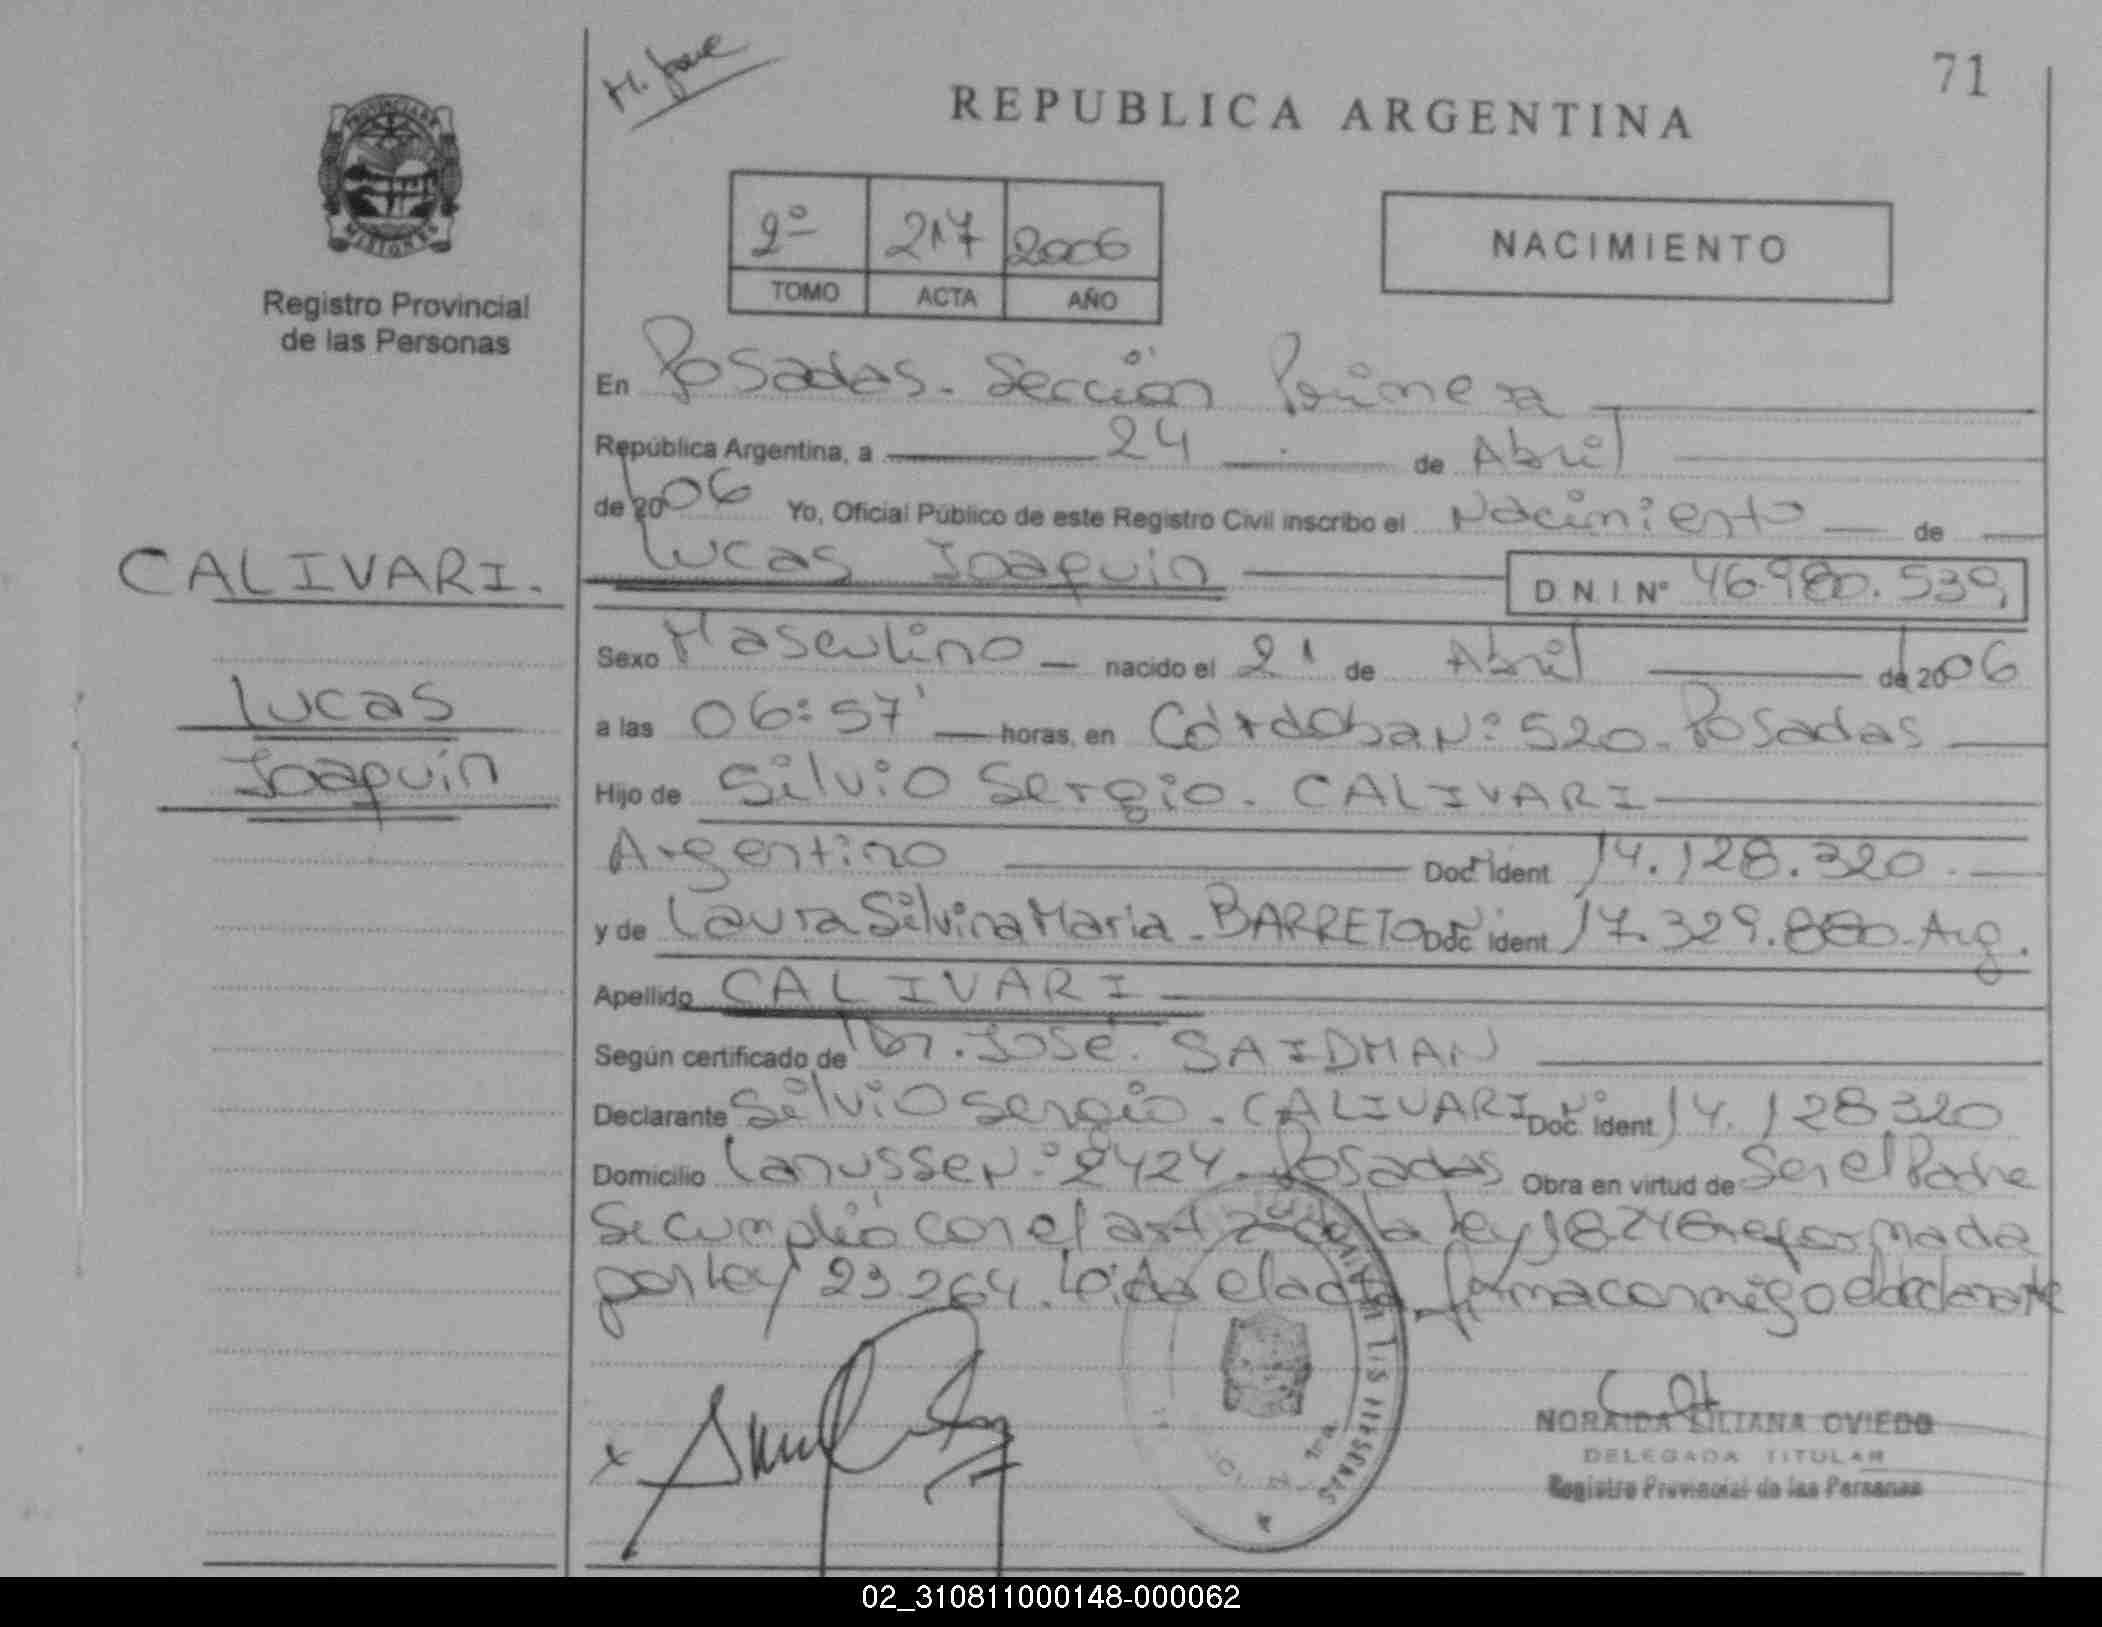 71
REPUBLICA ARGENTINA
PROVINCIA DE
MISIONES
Registro Provincial
de las Personas
2º 217 2006
TOMO ACTA AÑO
NACIMIENTO
En Posadas. Sección Primera
República Argentina, a 24 de Abril
de 2006 Yo, Oficial Público de este Registro Civil inscribo el Nacimiento de
CALIVARI.
Lucas
Joaquín
Lucas Joaquín D N I Nº 46.980.539
Sexo Masculino nacido el 21 de Abril de 2006
a las 06:57' horas, en Córdoba Nº 520. Posadas
Hijo de Silvio Sergio. CALIVARI
Argentino Doc. Ident 14.128.320.
y de Laura Silvina María. BARRETO Doc. Ident 17.329.880. Arg.
Apellido CALIVARI
Según certificado de Dr. José. SAIDMAN
Declarante Silvio Sergio. CALIVARI Doc. Ident 14.128320
Domicilio Lanusse Nº 2424. Posadas Obra en virtud de Ser el Padre
Se cumplió con el art 2º de la ley 18248 reformada
por ley 23.264. Leida el acta firma conmigo el declarante
NORAIDA LILIANA OVIEDO
DELEGADA TITULAR
Registro Provincial de las Personas
02_310811000148-000062